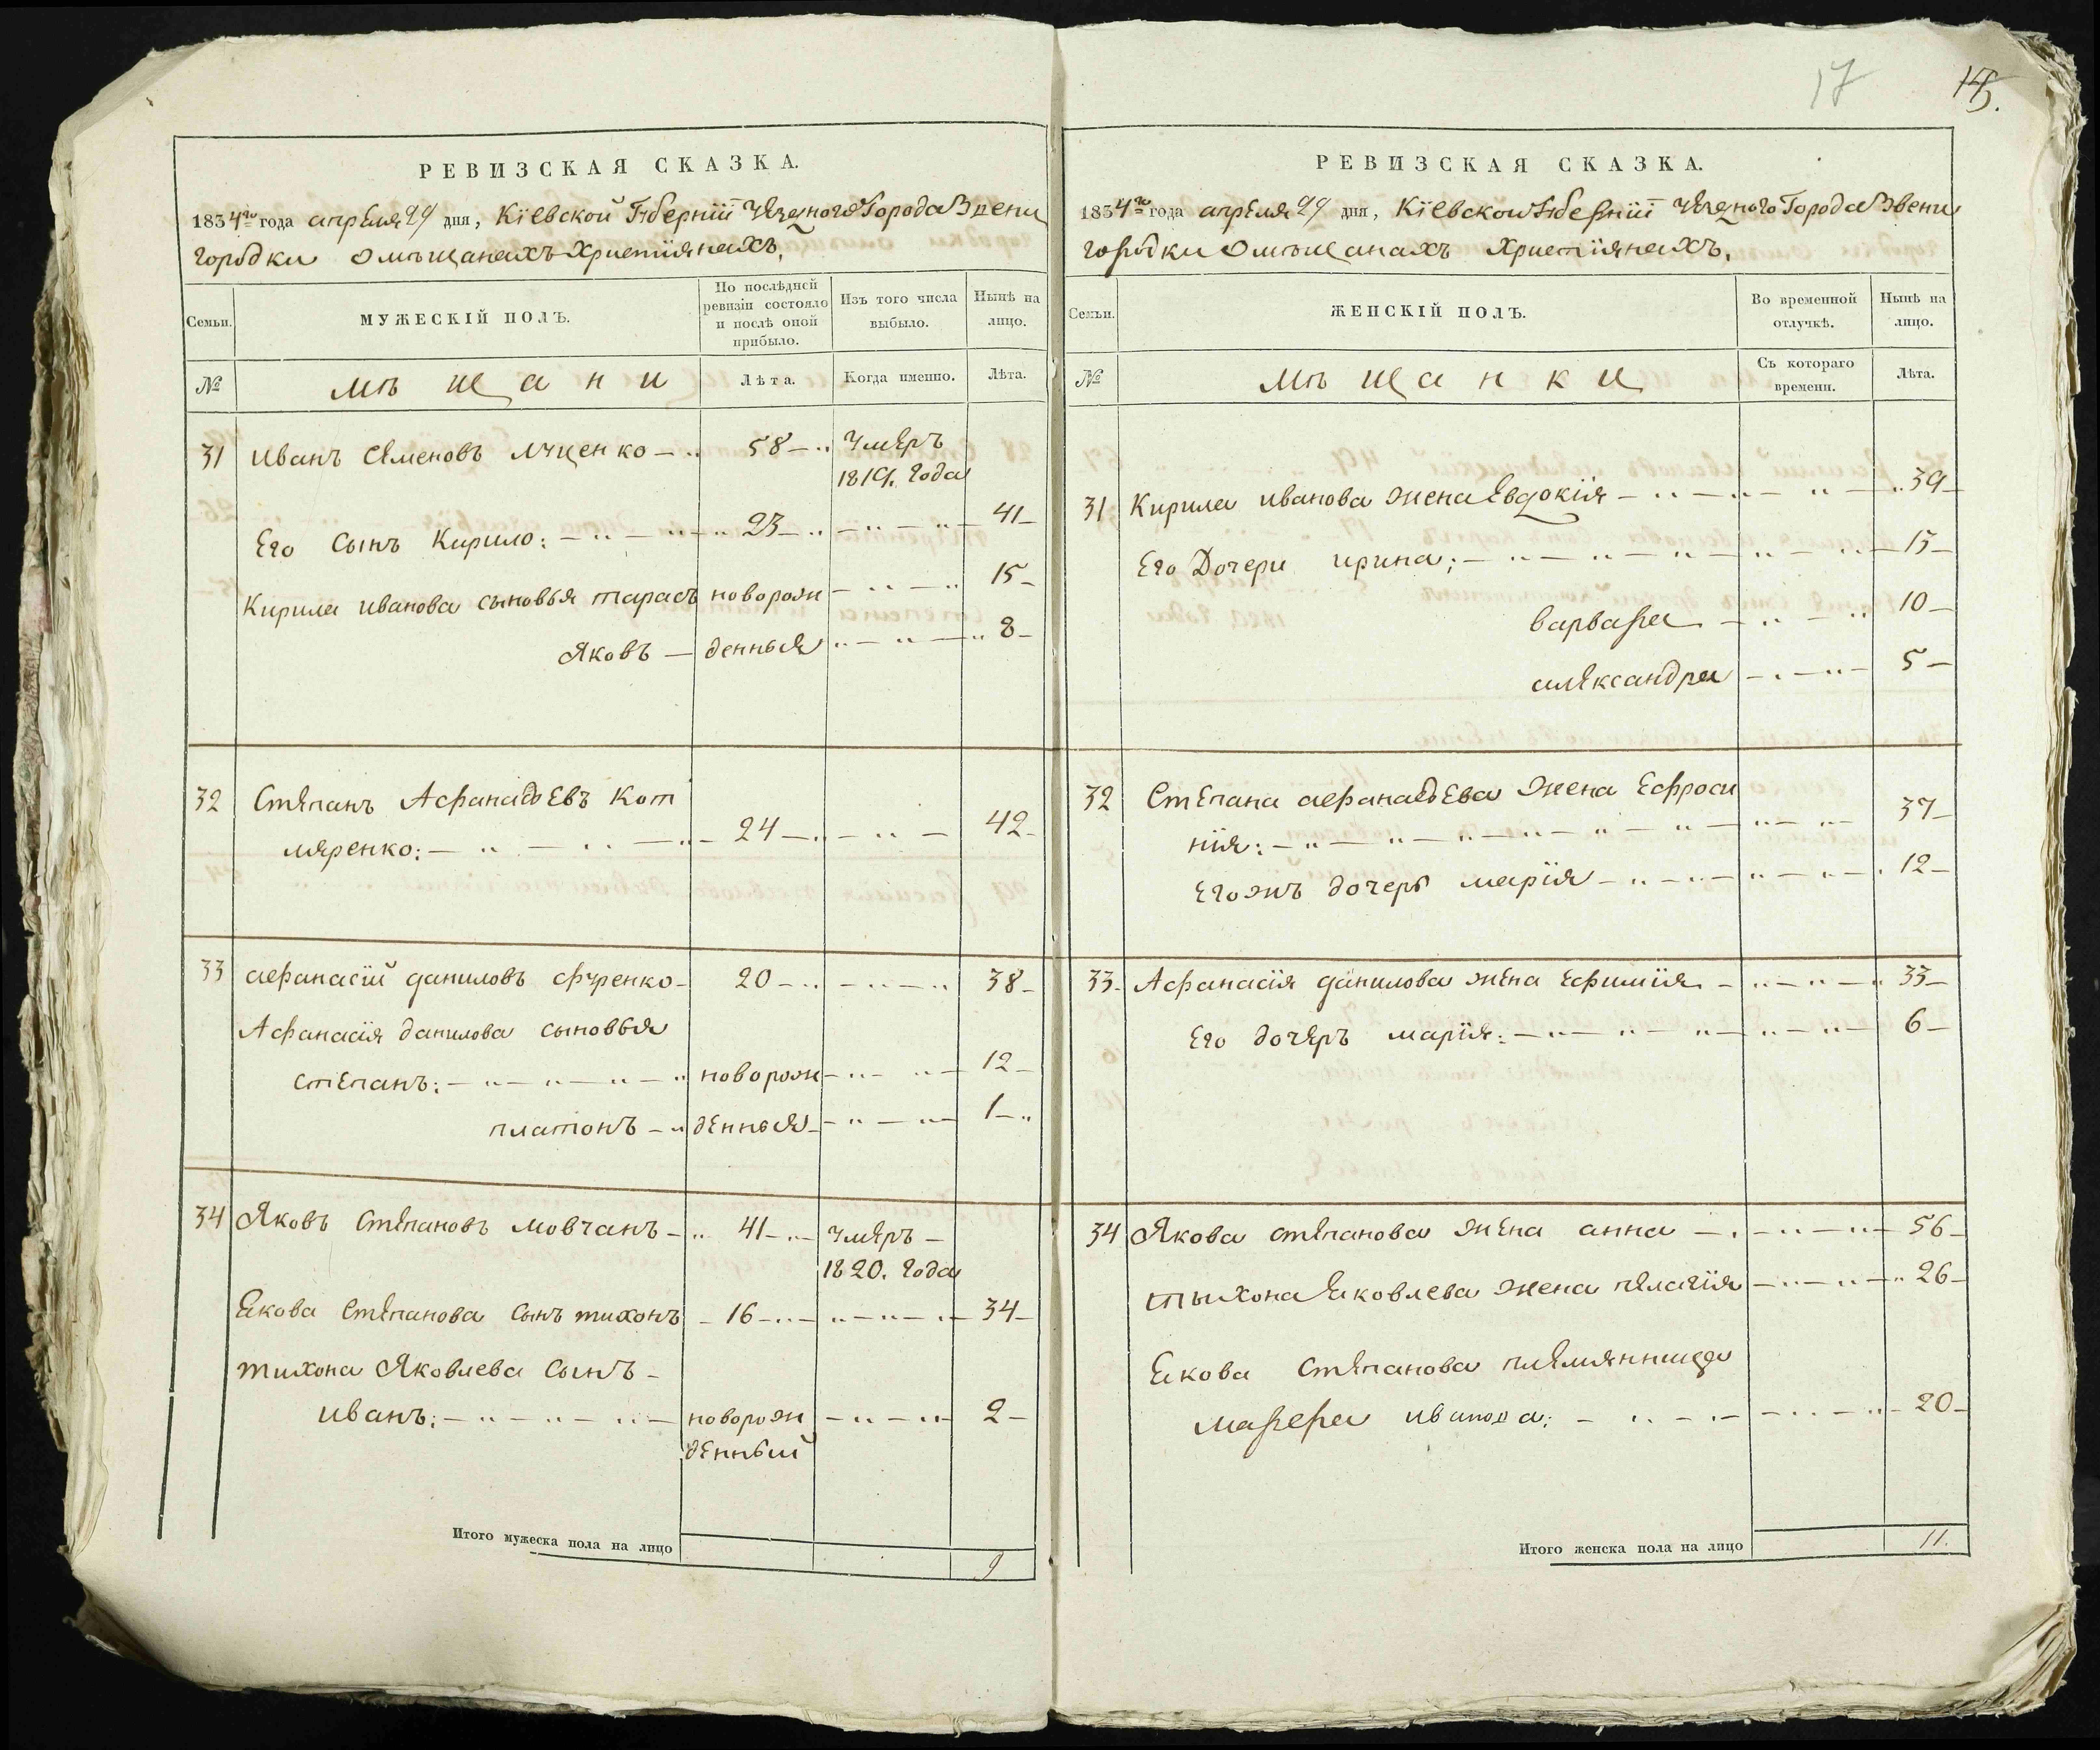 17
15.
РЕВИЗСКАЯ СКАЗКА.
1834го года апреля 29 дня, Кіевской Губерніи Уезного Города Звени
городки о мѣщанахъ христіянахъ.
Семьи.
МУЖЕСКІЙ ПОЛЪ.
По послѣдней ревизіи состояло и послѣ оной прибыло.
Изъ того числа выбыло.
Нынѣ на лицо.
№
мѣщани
Лѣта.
Когда именно.
Лѣта.
31 иванъ семеновъ луценко — 58 — умеръ
1819. года
Его сынъ Кирило: — 23 — 41 —
Кирила иванова сыновья тарасъ новорож — 15 —
Яковъ — денныя — 8 —
32 Степанъ Афанасьевъ Кот
ляренко: — 24 — 42 —
33 афанасій даниловъ фуренко — 20 — 38 —
Афанасія данилова сыновья
степанъ: — новорож — 12 —
платонъ — денныя — 1 —
34 Яковъ степановъ мовчанъ — 41 — умеръ —
1820. года
Якова степанова сынъ тихонъ — 16 — 34 —
тихона Яковлева сынъ —
иванъ: — новорож — 2 —
денный
Итого мужеска пола на лицо 9
РЕВИЗСКАЯ СКАЗКА.
1834го года апреля 29 дня, Кіевской Губерніи Уезного Города Звени
городки о мѣщанахъ христіянахъ.
Семьи.
ЖЕНСКІЙ ПОЛЪ.
Во временной отлучкѣ.
Нынѣ на лицо.
№
мѣщанки
Съ котораго времени.
Лѣта.
31 Кирила иванова жена Евдокія — 39 —
Его Дочери ирина; — 15 —
варвара — 10 —
александра — 5 —
32 Степана афанасьева жена Ефроси
нія: — 37 —
Его жъ дочерь марія — 12 —
33 Афанасія данилова жена ефимія — 33 —
Его дочеръ марія: — 6 —
34 Якова степанова жена анна — 56 —
тыхона Яковлева жена пелагія — 26 —
Якова степанова племянница
марфа иванова: — 20 —
Итого женска пола на лицо 11.